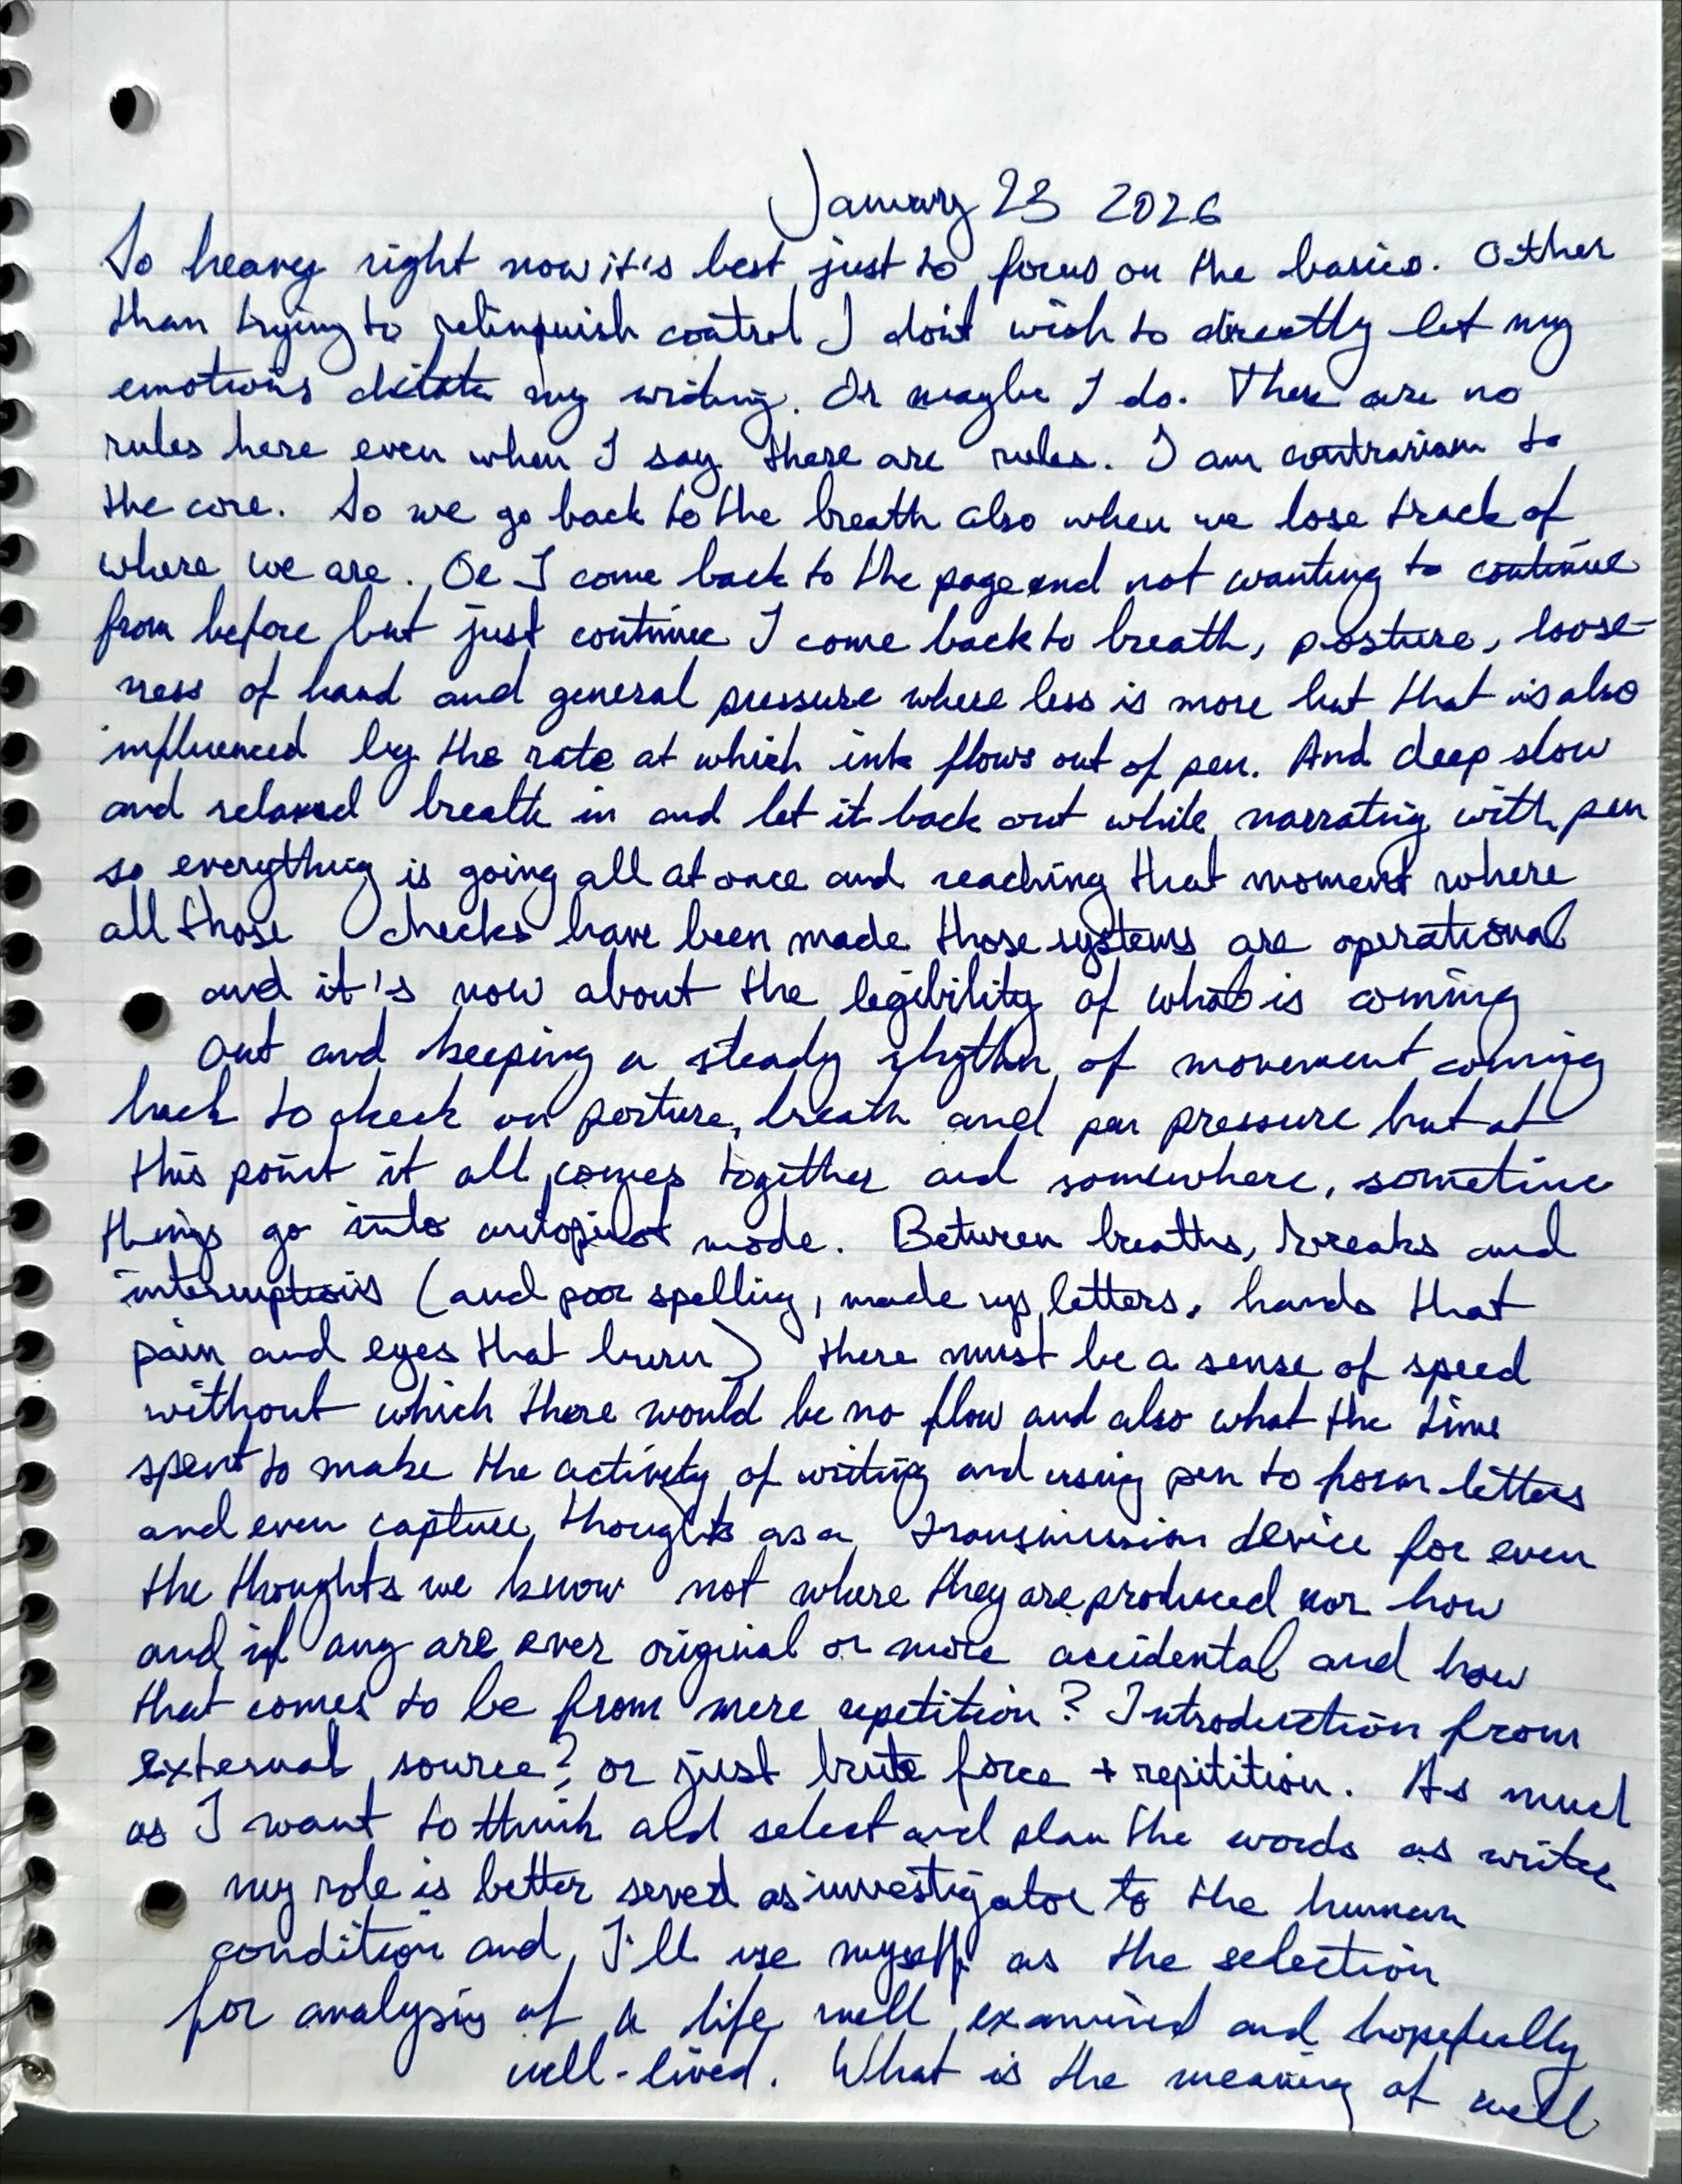 January 23 2026
So heavy right now it's best just to focus on the basics. Other
than trying to relinquish control I don't wish to directly let my
emotions dictate my writing. Or maybe I do. There are no
rules here even when I say there are rules. I am contrarian to
the core. So we go back to the breath also when we lose track of
where we are. Or I come back to the page and not wanting to continue
from before but just continue I come back to breath, posture, loose-
ness of hand and general pressure where less is more but that is also
influenced by the rate at which ink flows out of pen. And deep slow
and relaxed breath in and let it back out while narrating with pen
so everything is going all at once and reaching that moment where
all those checks have been made those systems are operational
and it's now about the legibility of what is coming
out and keeping a steady rhythm of movement coming
back to check on posture, breath and pen pressure but at
this point it all comes together and somewhere, sometime
things go into autopilot mode. Between breaths, breaks and
interruptions (and poor spelling, made up letters, hands that
pain and eyes that burn) there must be a sense of speed
without which there would be no flow and also what the time
spent to make the activity of writing and using pen to form letters
and even capture thoughts as a transmission device for even
the thoughts we know not where they are produced nor how
and if any are ever original or more accidental and how
that comes to be from mere repetition? Introduction from
external source? or just brute force + repitition. As much
as I want to think and select and plan the words as writer
my role is better served as investigator to the human
condition and I'll use myself as the selection
for analysis of a life well examined and hopefully
well-lived. What is the meaning of well